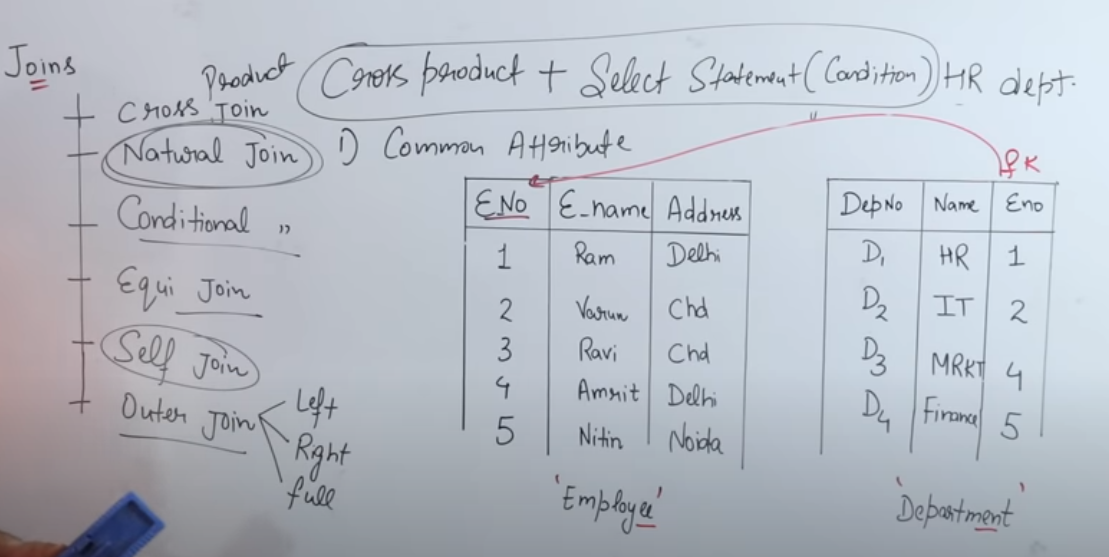 Joins
Cross Product Join
Natural Join
Conditional "
Equi Join
Self Join
Outer Join
Left
Right
full
Cross product + Select Statement (Condition) HR dept.
1) Common Attribute
E.No E_name Address
1 Ram Delhi
2 Varun Chd
3 Ravi Chd
4 Amrit Delhi
5 Nitin Noida
'Employee'
FK
DepNo Name Eno
D1 HR 1
D2 IT 2
D3 MRKT 4
D4 Finance 5
'Department'